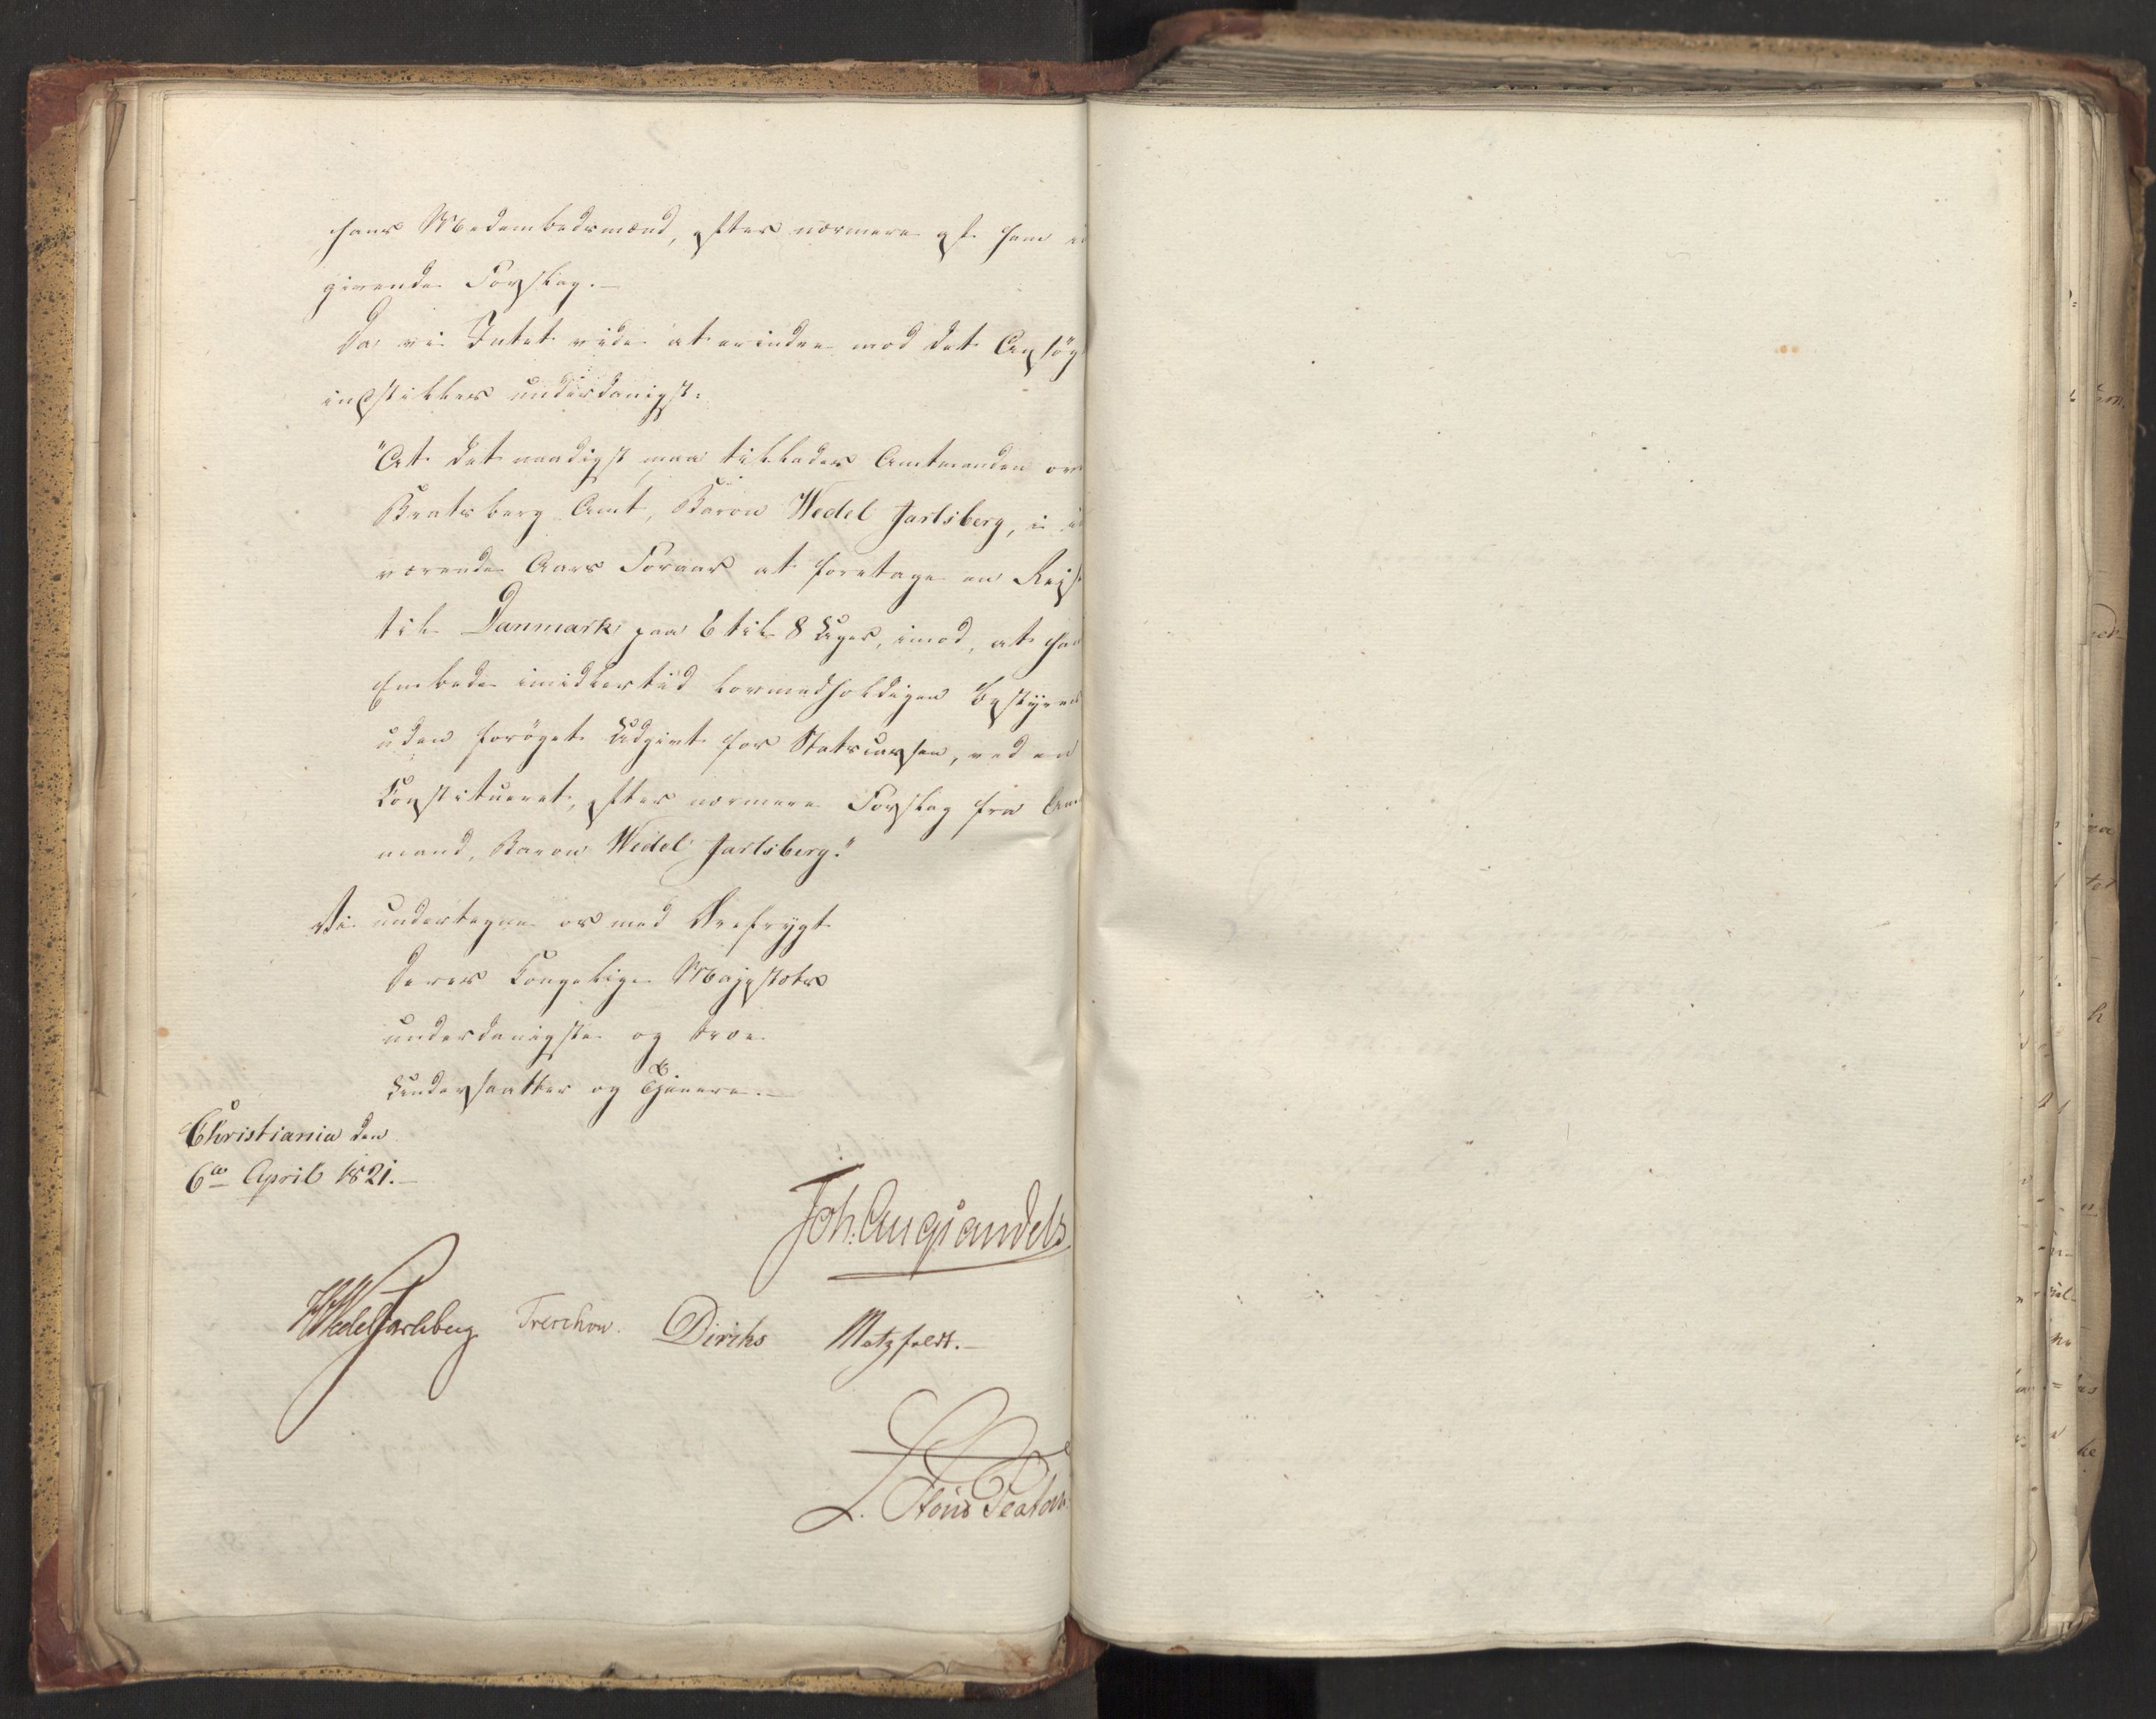 hans Medembedsmænd, efter nærmere af ham
givende Forslag. —
Da vi Intet vide at erindre mod det Ansøg
indstilles underdanigst:
"At det naadigst maa tillades Amtmanden ov
Bratsberg Amt, Baron Wedel Jarlsberg, i
værende Aars Foraar at foretage en Reis
til Danmark paa 6 til 8 Uger, imod, at han
Embede imidlertid lovmedholdigen bestyres
uden forøget Udgivt for Statscassen, ved en
Constitueret, efter nærmere Forslag fra Amt
mand, Baron Wedel Jarlsberg."
Vi undertegne os med Ærefrygt
Deres Kongelige Majestæts
underdanigste og troe
Undersaatter og Tjenere. —
Christiania den
6te April 1821. —
Joh: Aug Sandels
HWedel Jarlsberg Treschow. Diriks Motzfeldt. —
L. Stoud Platou